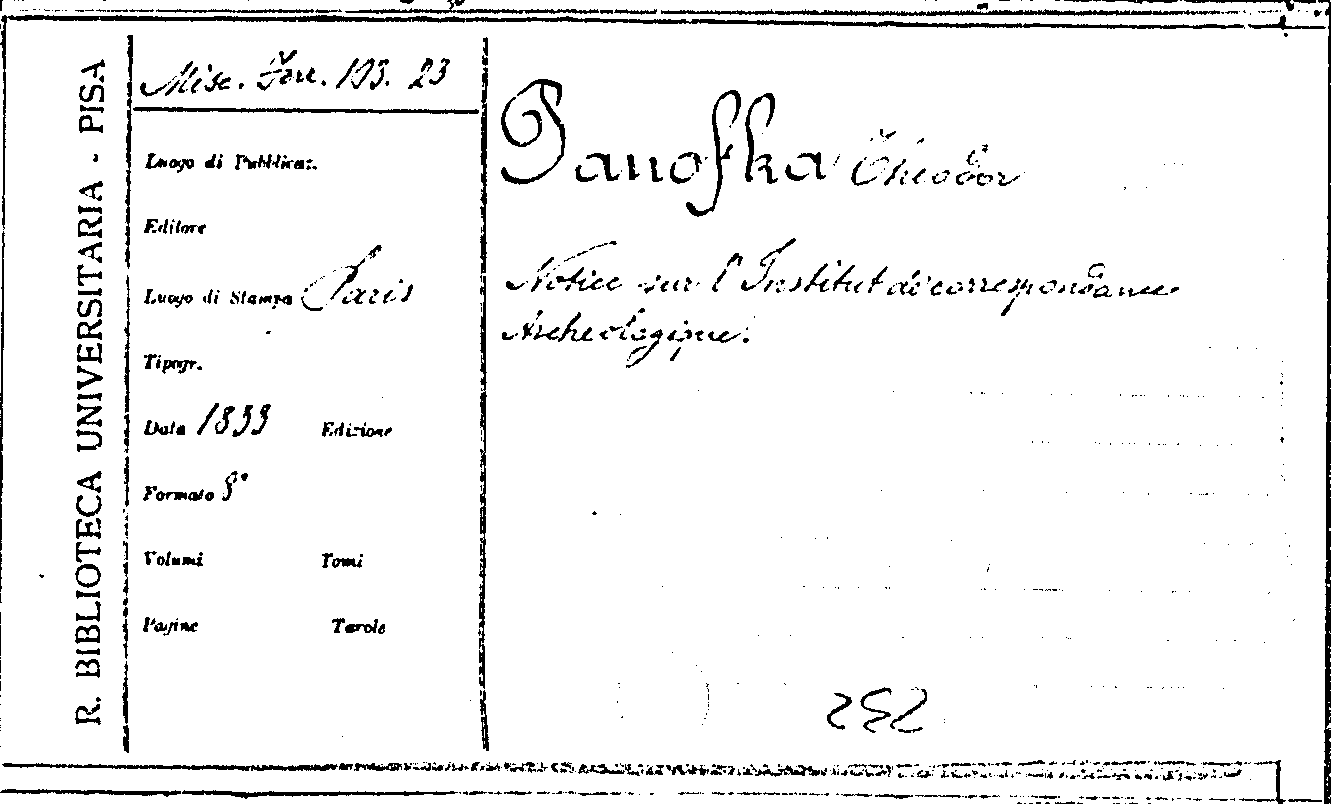 R. BIBLIOTECA UNIVERSITARIA - PISA
Misc. Ferr. 103. 23
Luogo di Pubblicaz.
Editore
Luogo di Stampa Paris
Tipogr.
Data 1833 Edizione
Formato 8°
Volumi Tomi
Pagine Tavole
Panofka Theodor
Notice sur l'Institut de correspondance
Archeologique.
252